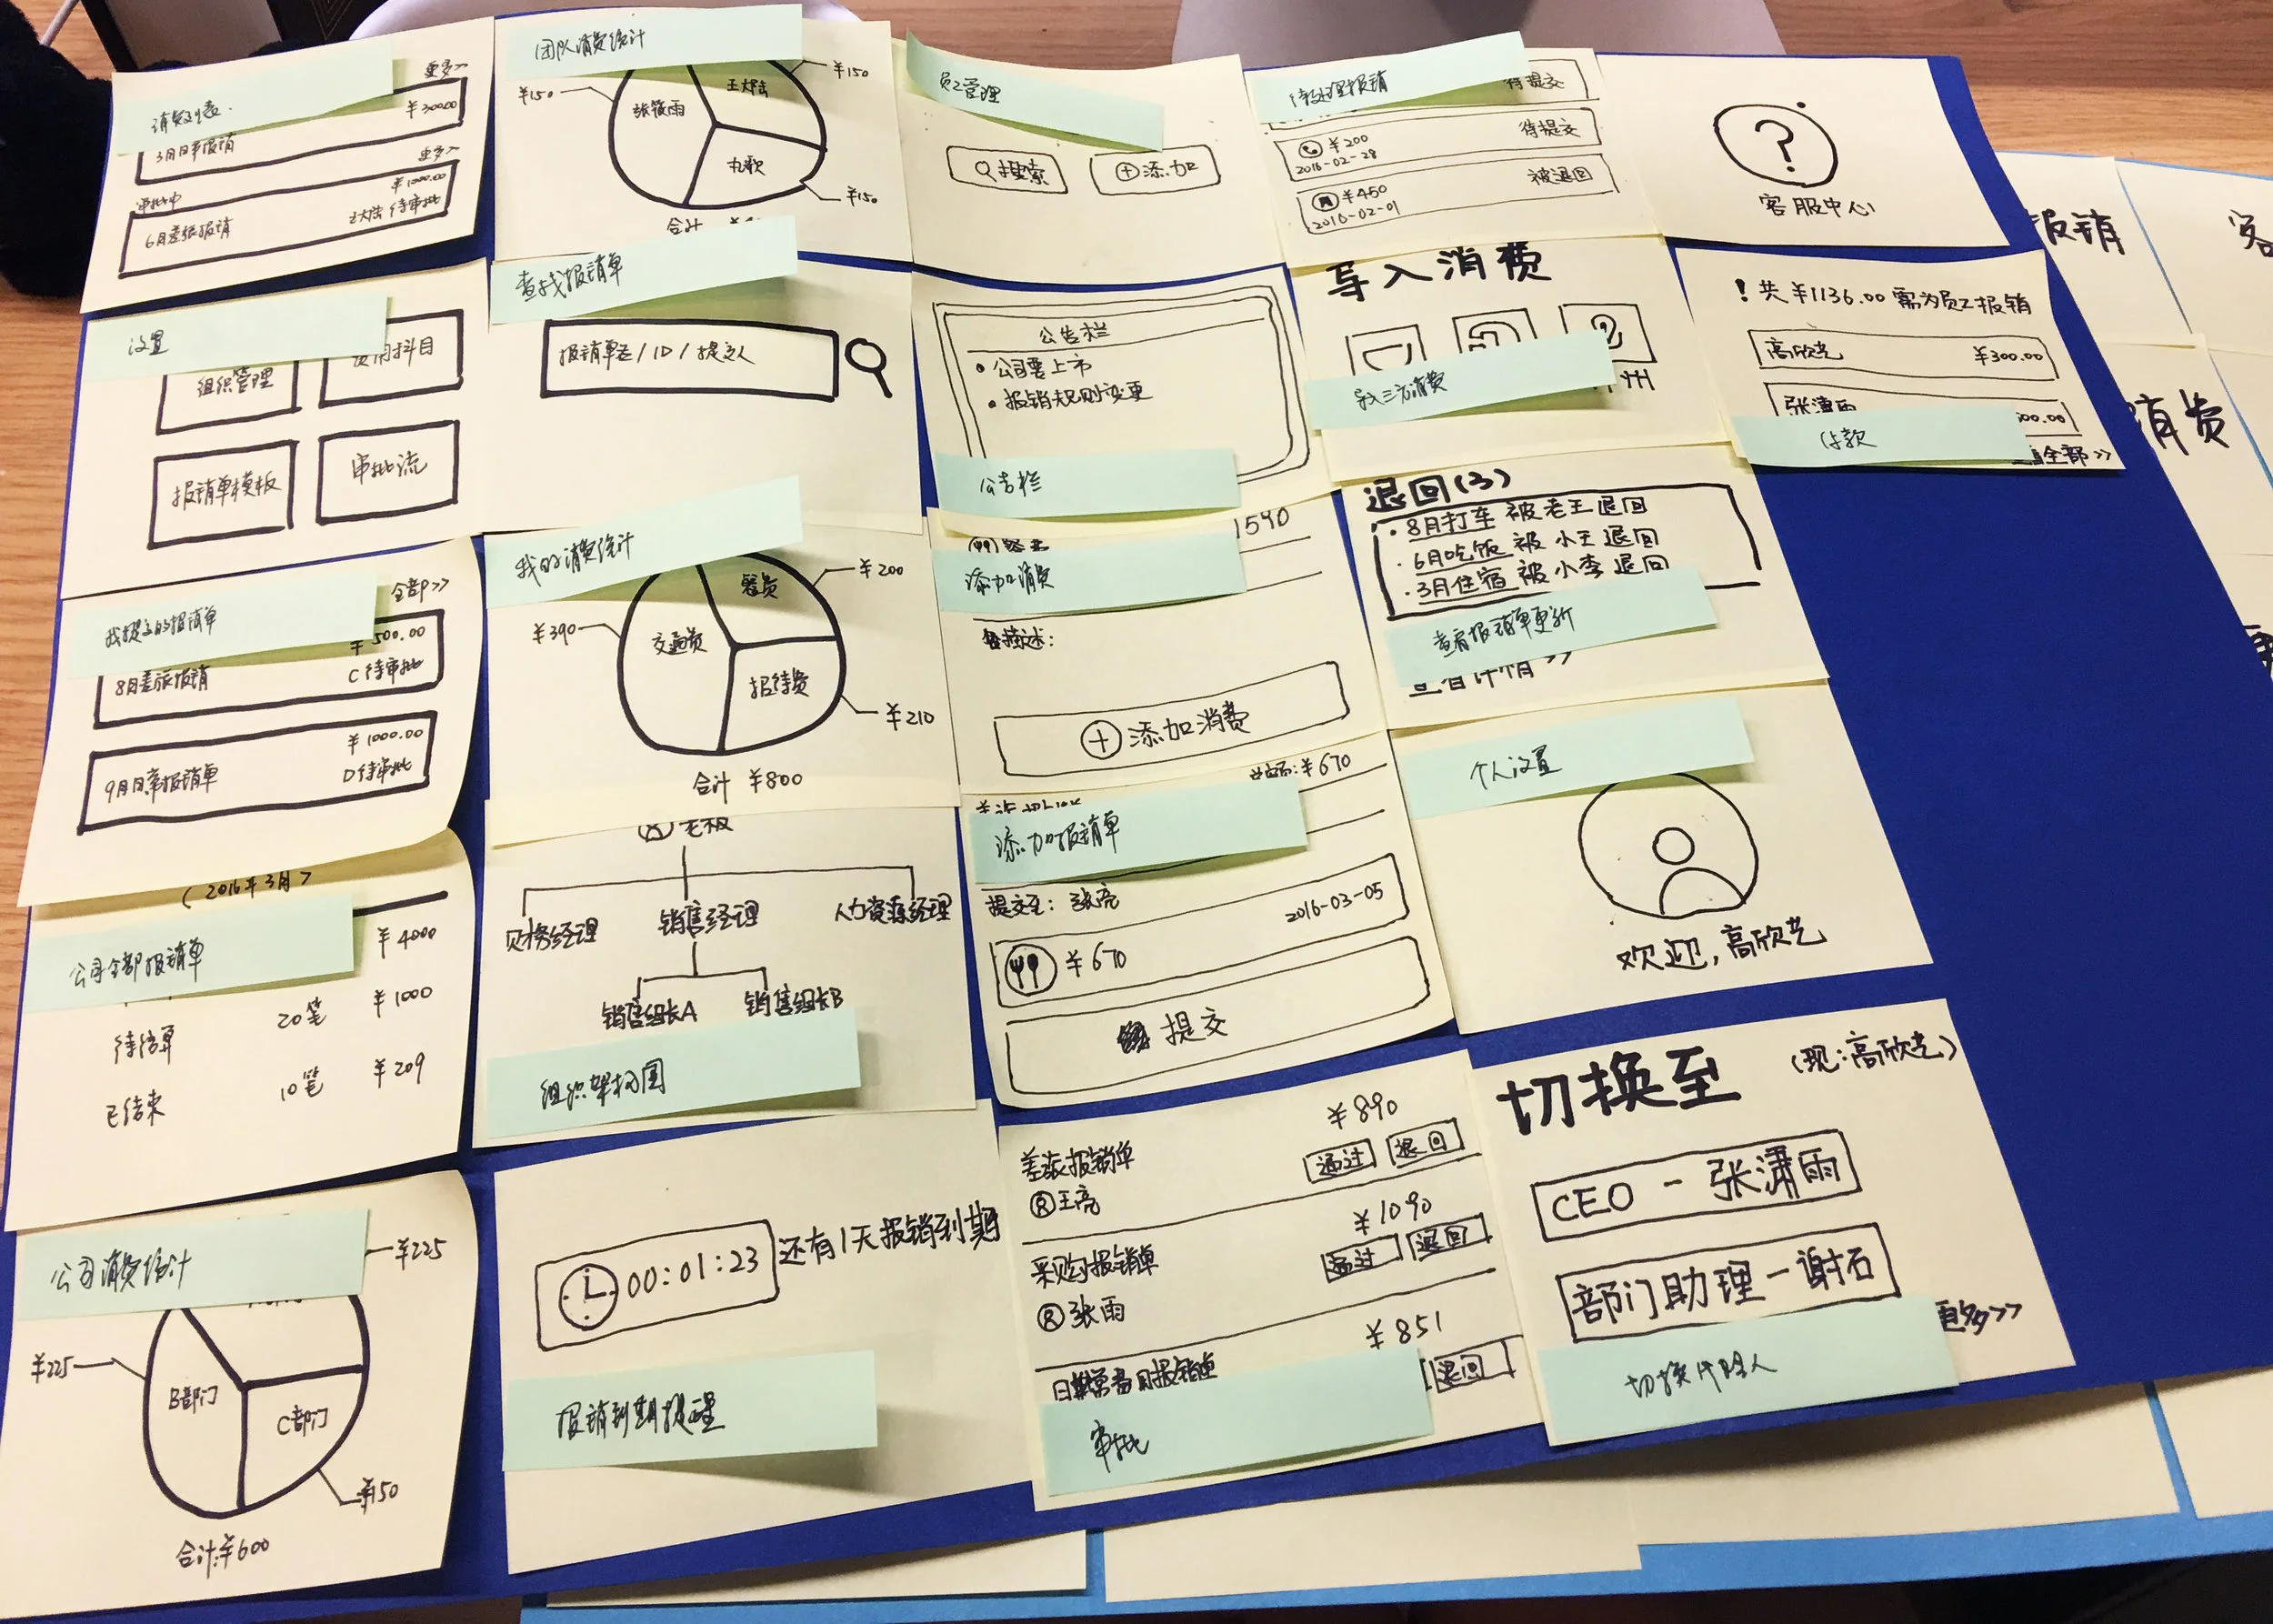 消费列表
更多>
¥300.00
3月日常报销
更多>
审批中
¥1000.00
6月差旅报销
王大陆 待审批
团队消费统计
¥150
¥150
张筱雨
王大陆
九歌
¥150
合计
员工管理
搜索
添加
待处理报销
待提交
¥200
待提交
2016-02-28
¥450
被退回
2016-02-01
?
客服中心
设置
组织管理
费用科目
报销单模板
审批流
查找报销单
报销单名/ID/提交人
公告栏
• 公司要上市
• 报销规则变更
公告栏
导入消费
导入三方消费
! 共¥1136.00 需为员工报销
高欣芝
¥300.00
张潇雨
00.00
付款
全部>>
我提交的报销单
全部>>
¥500.00
8月差旅报销
C待审批
¥1000.00
9月日常报销单
D待审批
我的消费统计
¥390
交通费
餐费
¥200
招待费
¥210
合计 ¥800
1540
添加消费
描述:
添加消费
退回(3)
· 8月打车 被老王退回
· 6月吃饭 被小王退回
· 3月住宿 被小李退回
查看报销单更新
查看详情>>
个人设置
欢迎,高欣芝
(2016年3月>
公司全部报销单
¥4000
待结算
20笔
¥1000
已结束
10笔
¥209
老板
财务经理
销售经理
人力资源经理
销售组长A
销售组长B
组织架构图
¥670
添加报销单
提交至: 张亮
2016-03-05
¥670
提交
公司消费统计
¥225
¥225
B部门
C部门
¥150
合计:¥600
00:01:23
还有1天报销到期
报销到期提醒
¥890
差旅报销单
通过
退回
王亮
¥1090
采购报销单
通过
退回
张雨
¥851
日常费用报销单
退回
审批
切换至
(现:高欣芝)
CEO - 张潇雨
部门助理-谢拓
更多>>
切换代理人
报销
客
消费